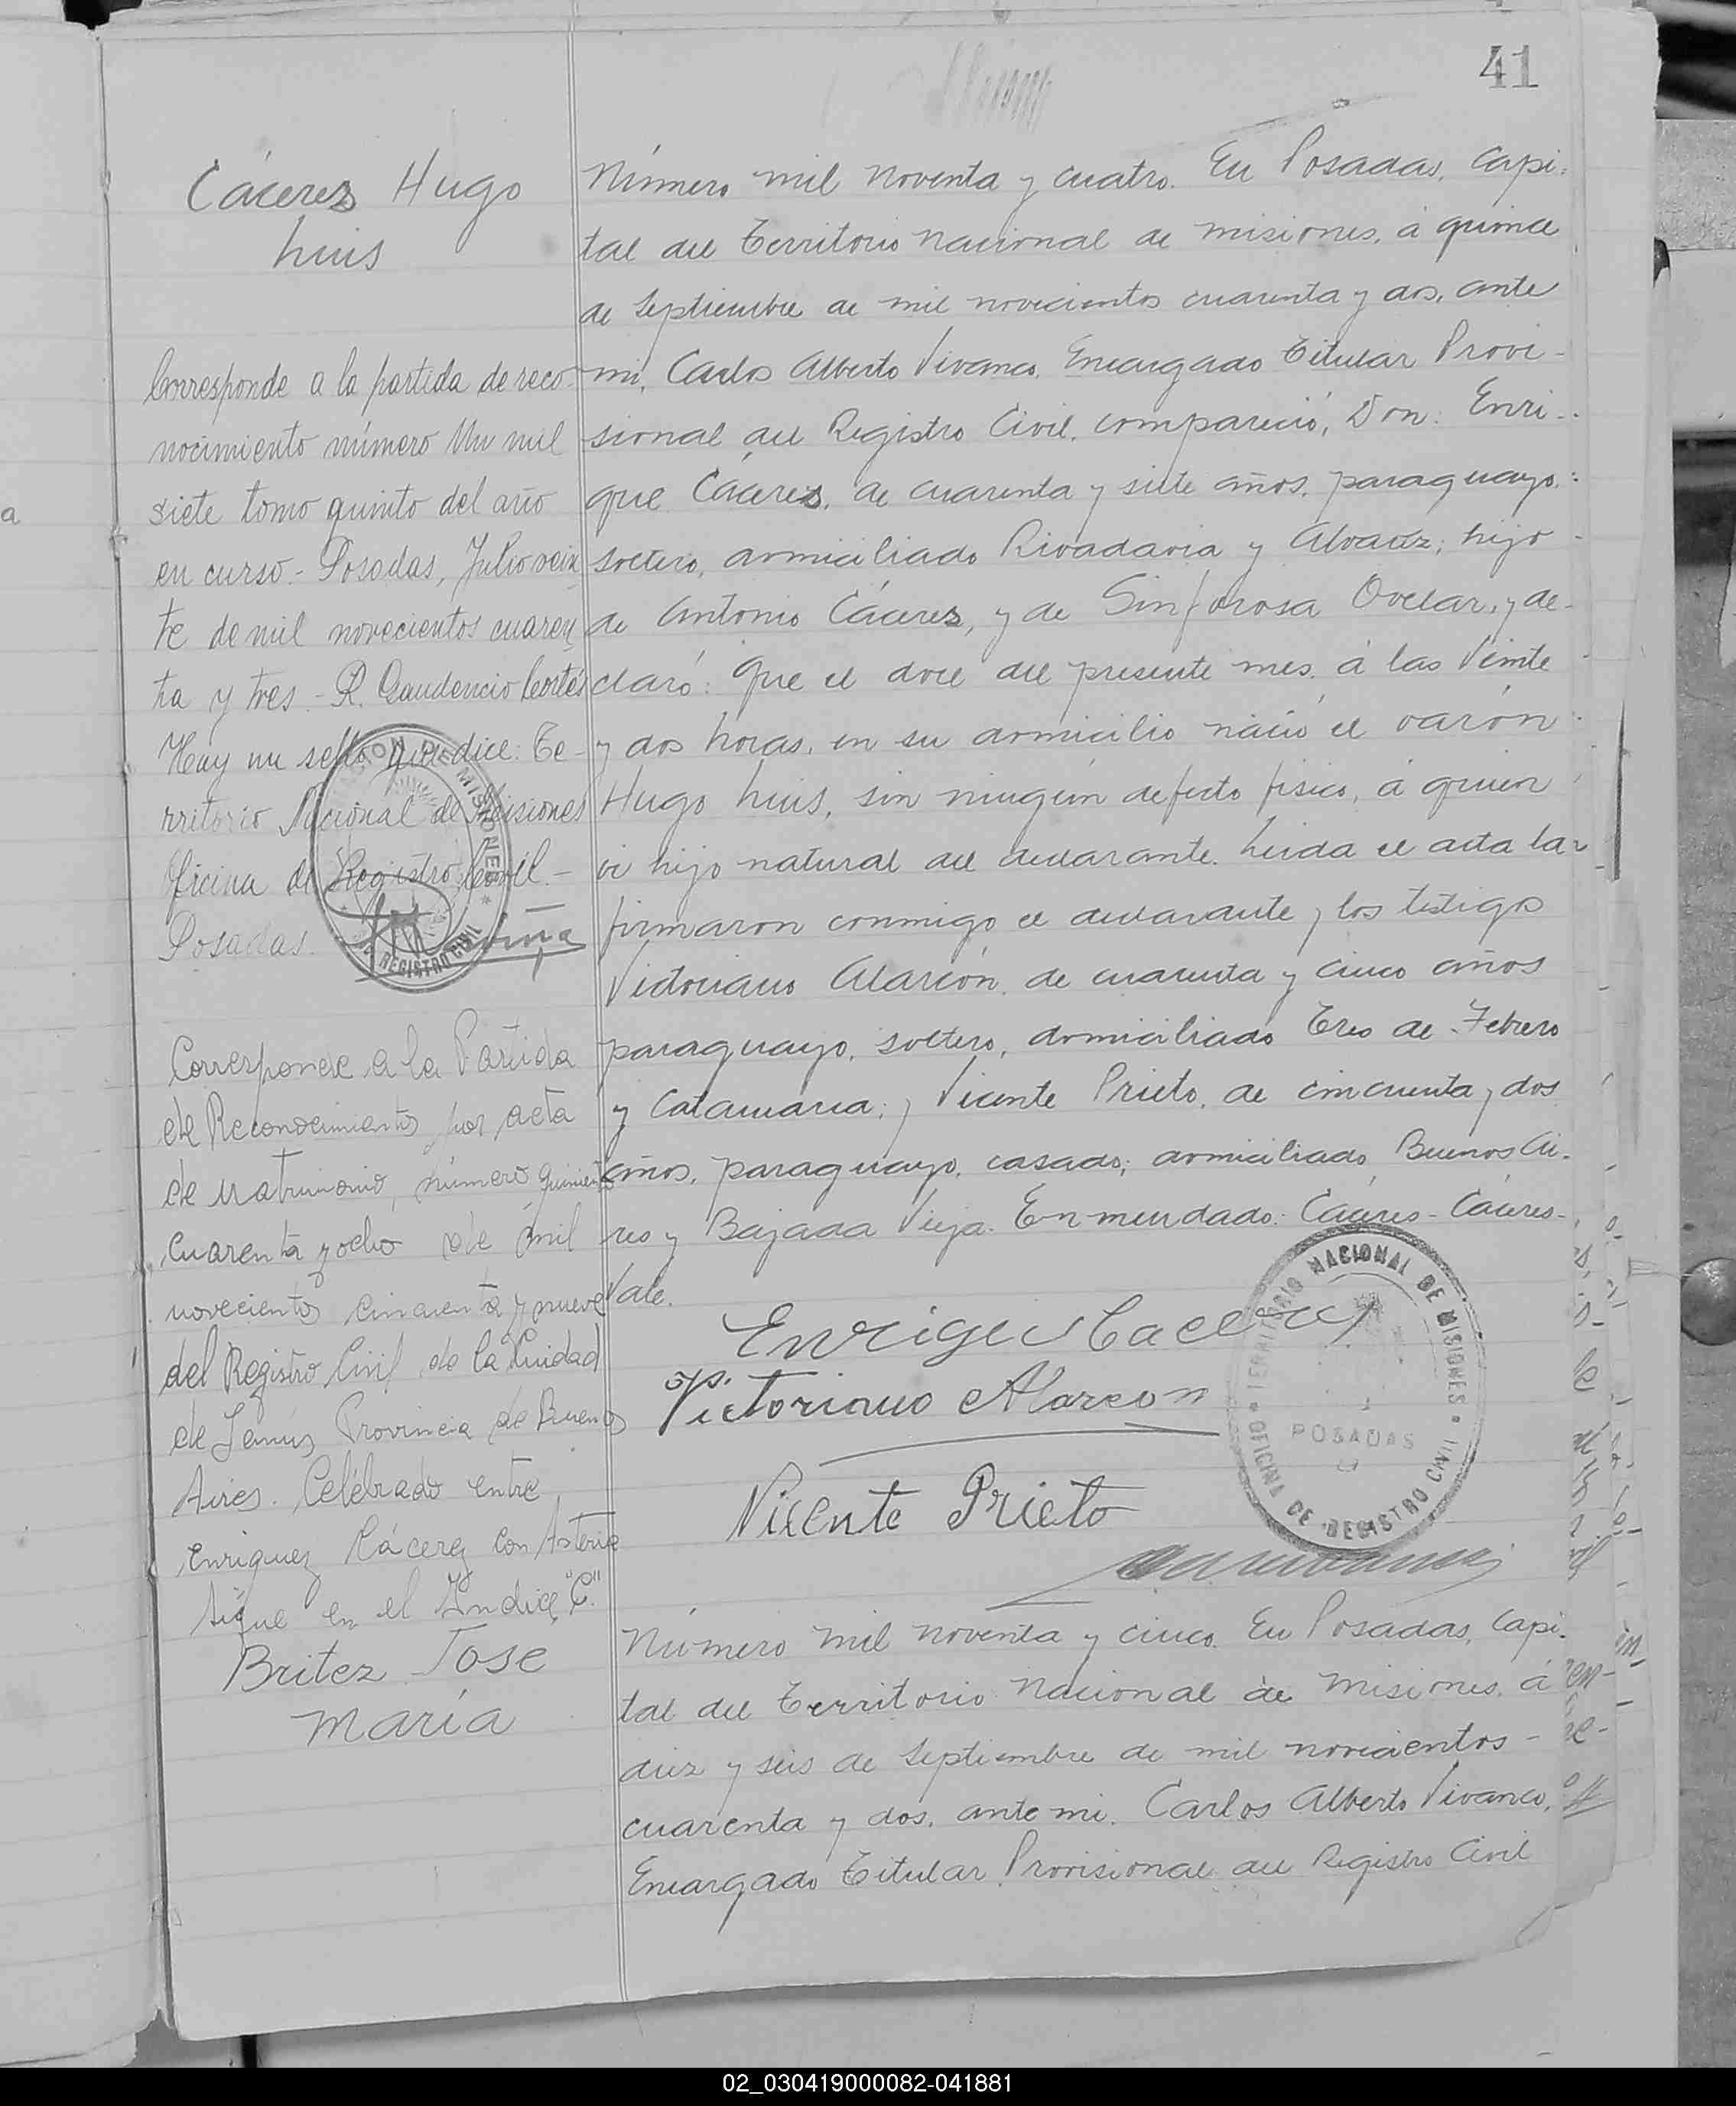 41
Cáceres Hugo
Luis
Número mil noventa y cuatro. En Posadas, Capi-
tal del Territorio Nacional de Misiones, á quince
de Septiembre de mil novecientos cuarenta y dos, ante
mi, Carlos Alberto Vivanco, Encargado Titular Provi-
sional del Registro Civil, compareció, Don: Enri-
que Cáceres, de cuarenta y siete años, paraguayo,
soltero, domiciliado Rivadavia y Alvarez; hijo
de Antonio Cáceres, y de Sinforosa Ovelar, y de-
claró: Que el doce del presente mes, á las Veinte
y dos horas, en su domicilio nació el varón
Hugo Luis, sin ningún defecto físico, á quien
vi hijo natural del declarante. Leida el acta la
firmaron conmigo el declarante y los testigos
Victoriano Alarcón, de cuarenta y cinco años
paraguayo, soltero, domiciliado Tres de Febrero
y Catamarca; y Vicente Prieto, de cincuenta y dos
años, paraguayo, casado; domiciliado Buenos Ai-
res y Bajada Vieja. Enmendado: Cáceres - Cáceres -
Vale.
Enrique Caceres
Victoriano Alarcon
Vicente Prieto
TERRITORIO NACIONAL DE MISIONES
POSADAS
OFICINA DE REGISTRO CIVIL
Corresponde a la partida de reco-
nocimiento número Un mil
siete tomo quinto del año
en curso.- Posadas, Julio vein
te de mil novecientos cuaren
ta y tres - R. Gaudencio Cortés
Hay un sello que dice: Te-
rritorio Nacional de Misiones
Oficina de Registro Civil.-
Posadas.
MISIONES
REGISTRO CIVIL
Corresponde a la Partida
de Reconocimiento por acta
de Matrimonio, número quinientos
cuarenta y ocho de mil
novecientos cincuenta y nueve
del Registro Civil de la Ciudad
de Lanús Provincia de Buenos
Aires. Celebrado entre
Enriquez Cácerez con Asteria
sigue en el Indice "C"
Britez Jose
María
Número mil noventa y cinco. En Posadas, Capi-
tal del Territorio Nacional de Misiones, á
diez y seis de Septiembre de mil novecientos -
cuarenta y dos, ante mi, Carlos Alberto Vivanco,
Encargado Titular Provisional del Registro Civil
02_030419000082-041881